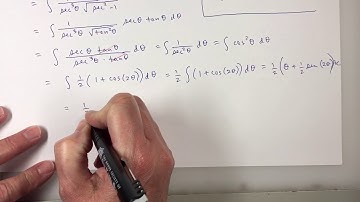 = ∫ 1/(sec³θ √(sec²θ-1))
= ∫ 1/(sec³θ √(tan²θ)) secθ tanθ dθ
= ∫ (secθ tanθ)/(sec³θ · tanθ) dθ = ∫ 1/(sec²θ) dθ = ∫ cos²θ dθ
= ∫ 1/2 (1 + cos(2θ)) dθ = 1/2 ∫ (1 + cos(2θ)) dθ = 1/2 (θ + 1/2 sin(2θ)) + C
= 1